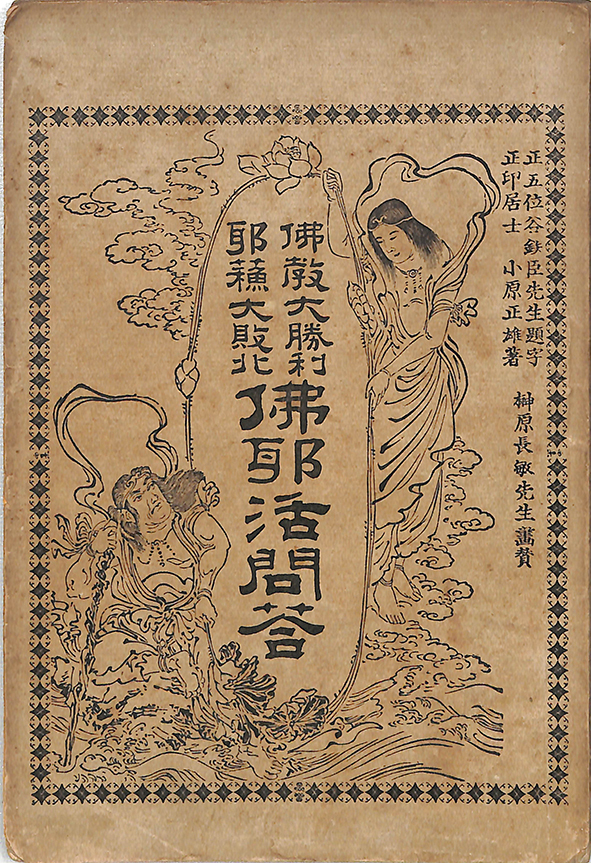 正五位谷鉄臣先生題字
榊原長敏先生畵賛
正印居士　小原正雄著
佛敎大勝利
耶蘓大敗北
佛耶活問答